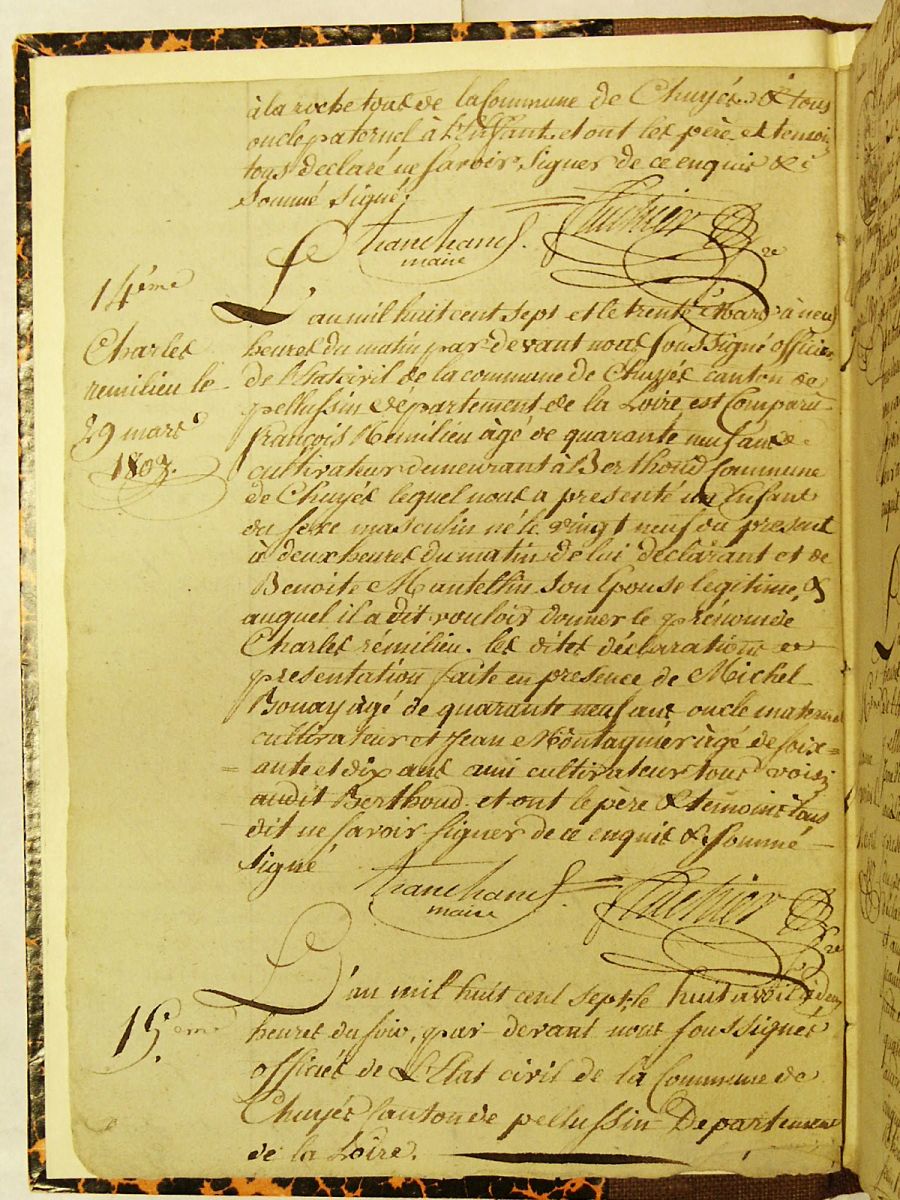 à la roche tous de la Commune de Chuyés. & tous
oncle paternel à l'Enfant. et ont les père et temoin
tous declaré ne savoir signer de ce enquis &
sommé signé.
tranchand
maire
14ème
L'an mil huit cent sept et le trente Mars à neuf
heures du matin par devant nous sous signé officier
de l'Etat civil de la commune de Chuyés canton de
pellussin departement de la Loire, est Comparu
françois Remilieu âgé de quarante neuf ans
cultivateur demeurant à Berthoud Commune
de Chuyés lequel nous a presenté un Enfant
du sexe masculin né le vingt neuf du present
a deux heures du matin de lui déclarant et de
Benoite Mantellin son Epouse legitime, &
auquel il a dit vouloir donner le prénom de
Charles rémilieu. les dites déclaration et
presentation faite en presence de Michel
Bonay âgé de quarante neuf ans oncle maternel
cultivateur et Jean Montagnier âgé de soix=
=ante et dix ans ami cultivateur tous voisin
audit Berthoud. et ont le père & témoins tous
dit ne savoir signer de ce enquis & sommé
signé
Charles
remilieu le
29 mars
1807.
tranchand
maire
15ème
L'an mil huit cent sept, le huit avril à deux
heures du soir, par-devant nous soussignés
officiés de L'Etat civil de la Commune de
Chuyés Canton de pellussin Departement
de la Loire.